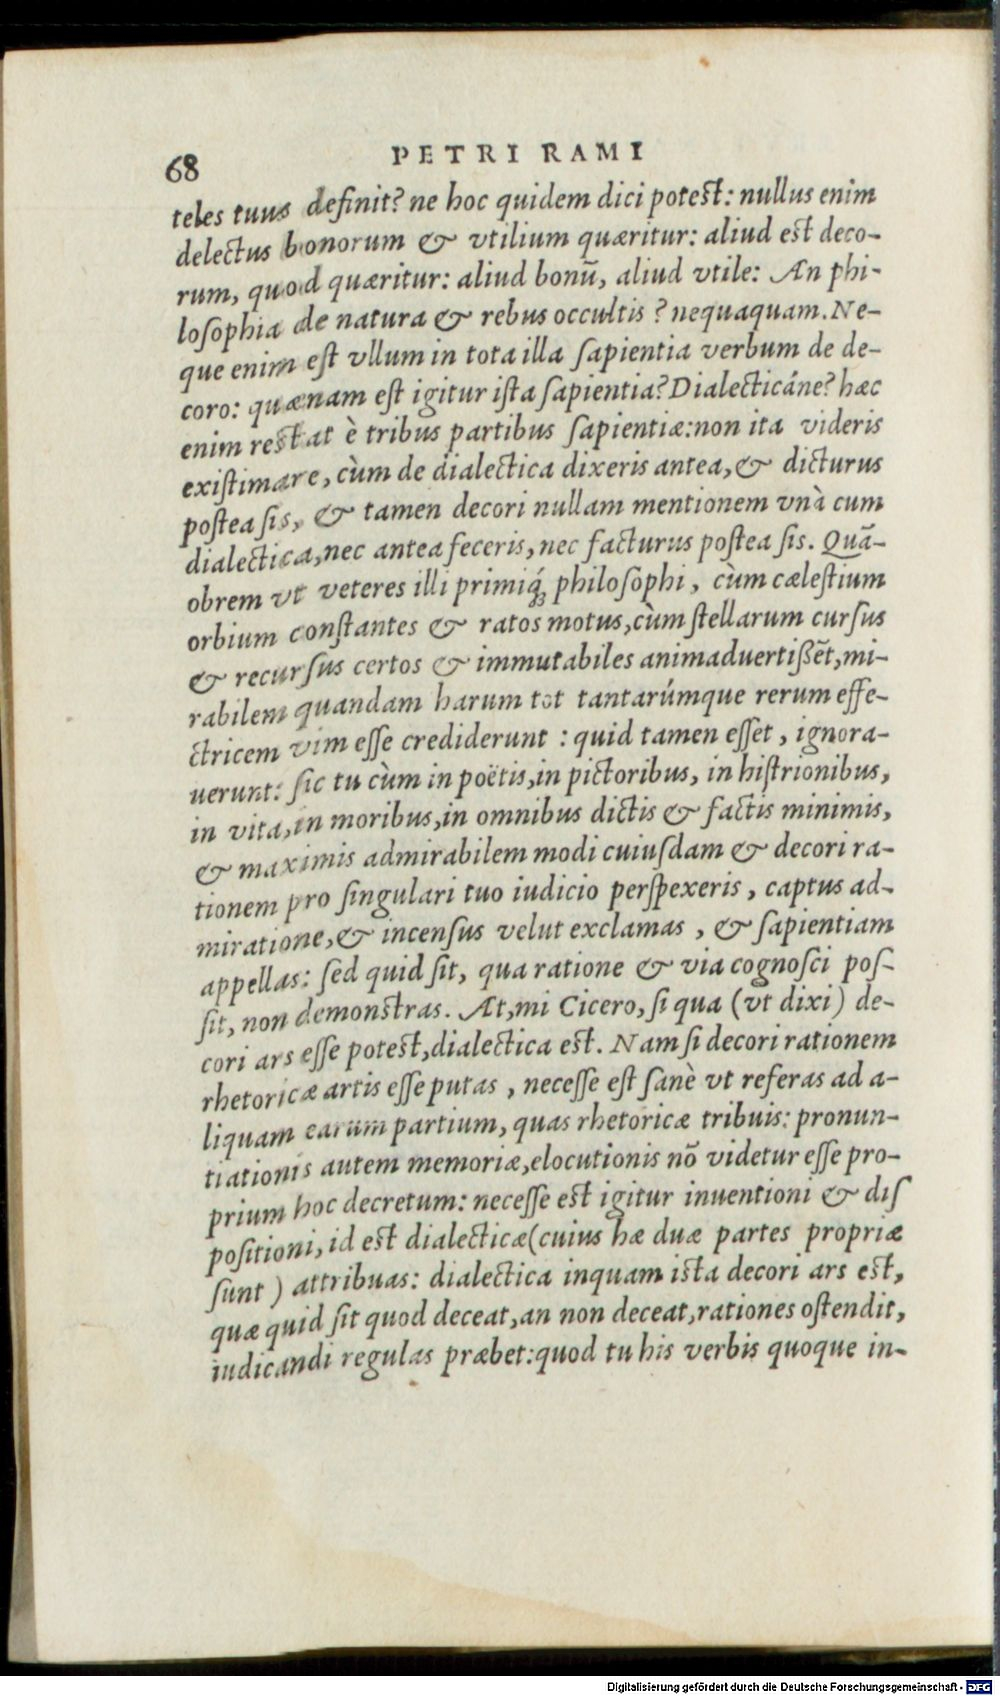 68 PETRI RAMI
teles tuus definit? ne hoc quidem dici potest: nullus enim
delectus bonorum & vtilium quæritur: aliud est deco-
rum, quod quæritur: aliud bonū, aliud vtile: An phi-
losophia de natura & rebus occultis? nequaquam. Ne-
que enim est vllum in tota illa sapientia verbum de de-
coro: quænam est igitur ista sapientia? Dialecticáne? hæc
enim restat è tribus partibus sapientiæ: non ita videris
existimare, cùm de dialectica dixeris antea, & dicturus
postea sis, & tamen decori nullam mentionem vnà cum
dialectica, nec antea feceris, nec facturus postea sis. Quā-
obrem vt veteres illi primiq́; philosophi, cùm cælestium
orbium constantes & ratos motus, cùm stellarum cursus
& recursus certos & immutabiles animaduertißēt, mi-
rabilem quandam harum tot tantarúmque rerum effe-
ctricem vim esse crediderunt: quid tamen esset, ignora-
uerunt: sic tu cùm in poëtis, in pictoribus, in histrionibus,
in vita, in moribus, in omnibus dictis & factis minimis,
& maximis admirabilem modi cuiusdam & decori ra-
tionem pro singulari tuo iudicio perspexeris, captus ad-
miratione, & incensus velut exclamas, & sapientiam
appellas: sed quid sit, qua ratione & via cognosci pos-
sit, non demonstras. At, mi Cicero, si qua (vt dixi) de-
cori ars esse potest, dialectica est. Nam si decori rationem
rhetoricæ artis esse putas, necesse est sanè vt referas ad a-
liquam earum partium, quas rhetoricæ tribuis: pronun-
tiationis autem memoriæ, elocutionis nō videtur esse pro-
prium hoc decretum: necesse est igitur inuentioni & dis
positioni, id est dialecticæ (cuius hæ duæ partes propriæ
sunt) attribuas: dialectica inquam ista decori ars est,
quæ quid sit quod deceat, an non deceat, rationes ostendit,
iudicandi regulas præbet: quod tu his verbis quoque in-
Digitalisierung gefördert durch die Deutsche Forschungsgemeinschaft - DFG